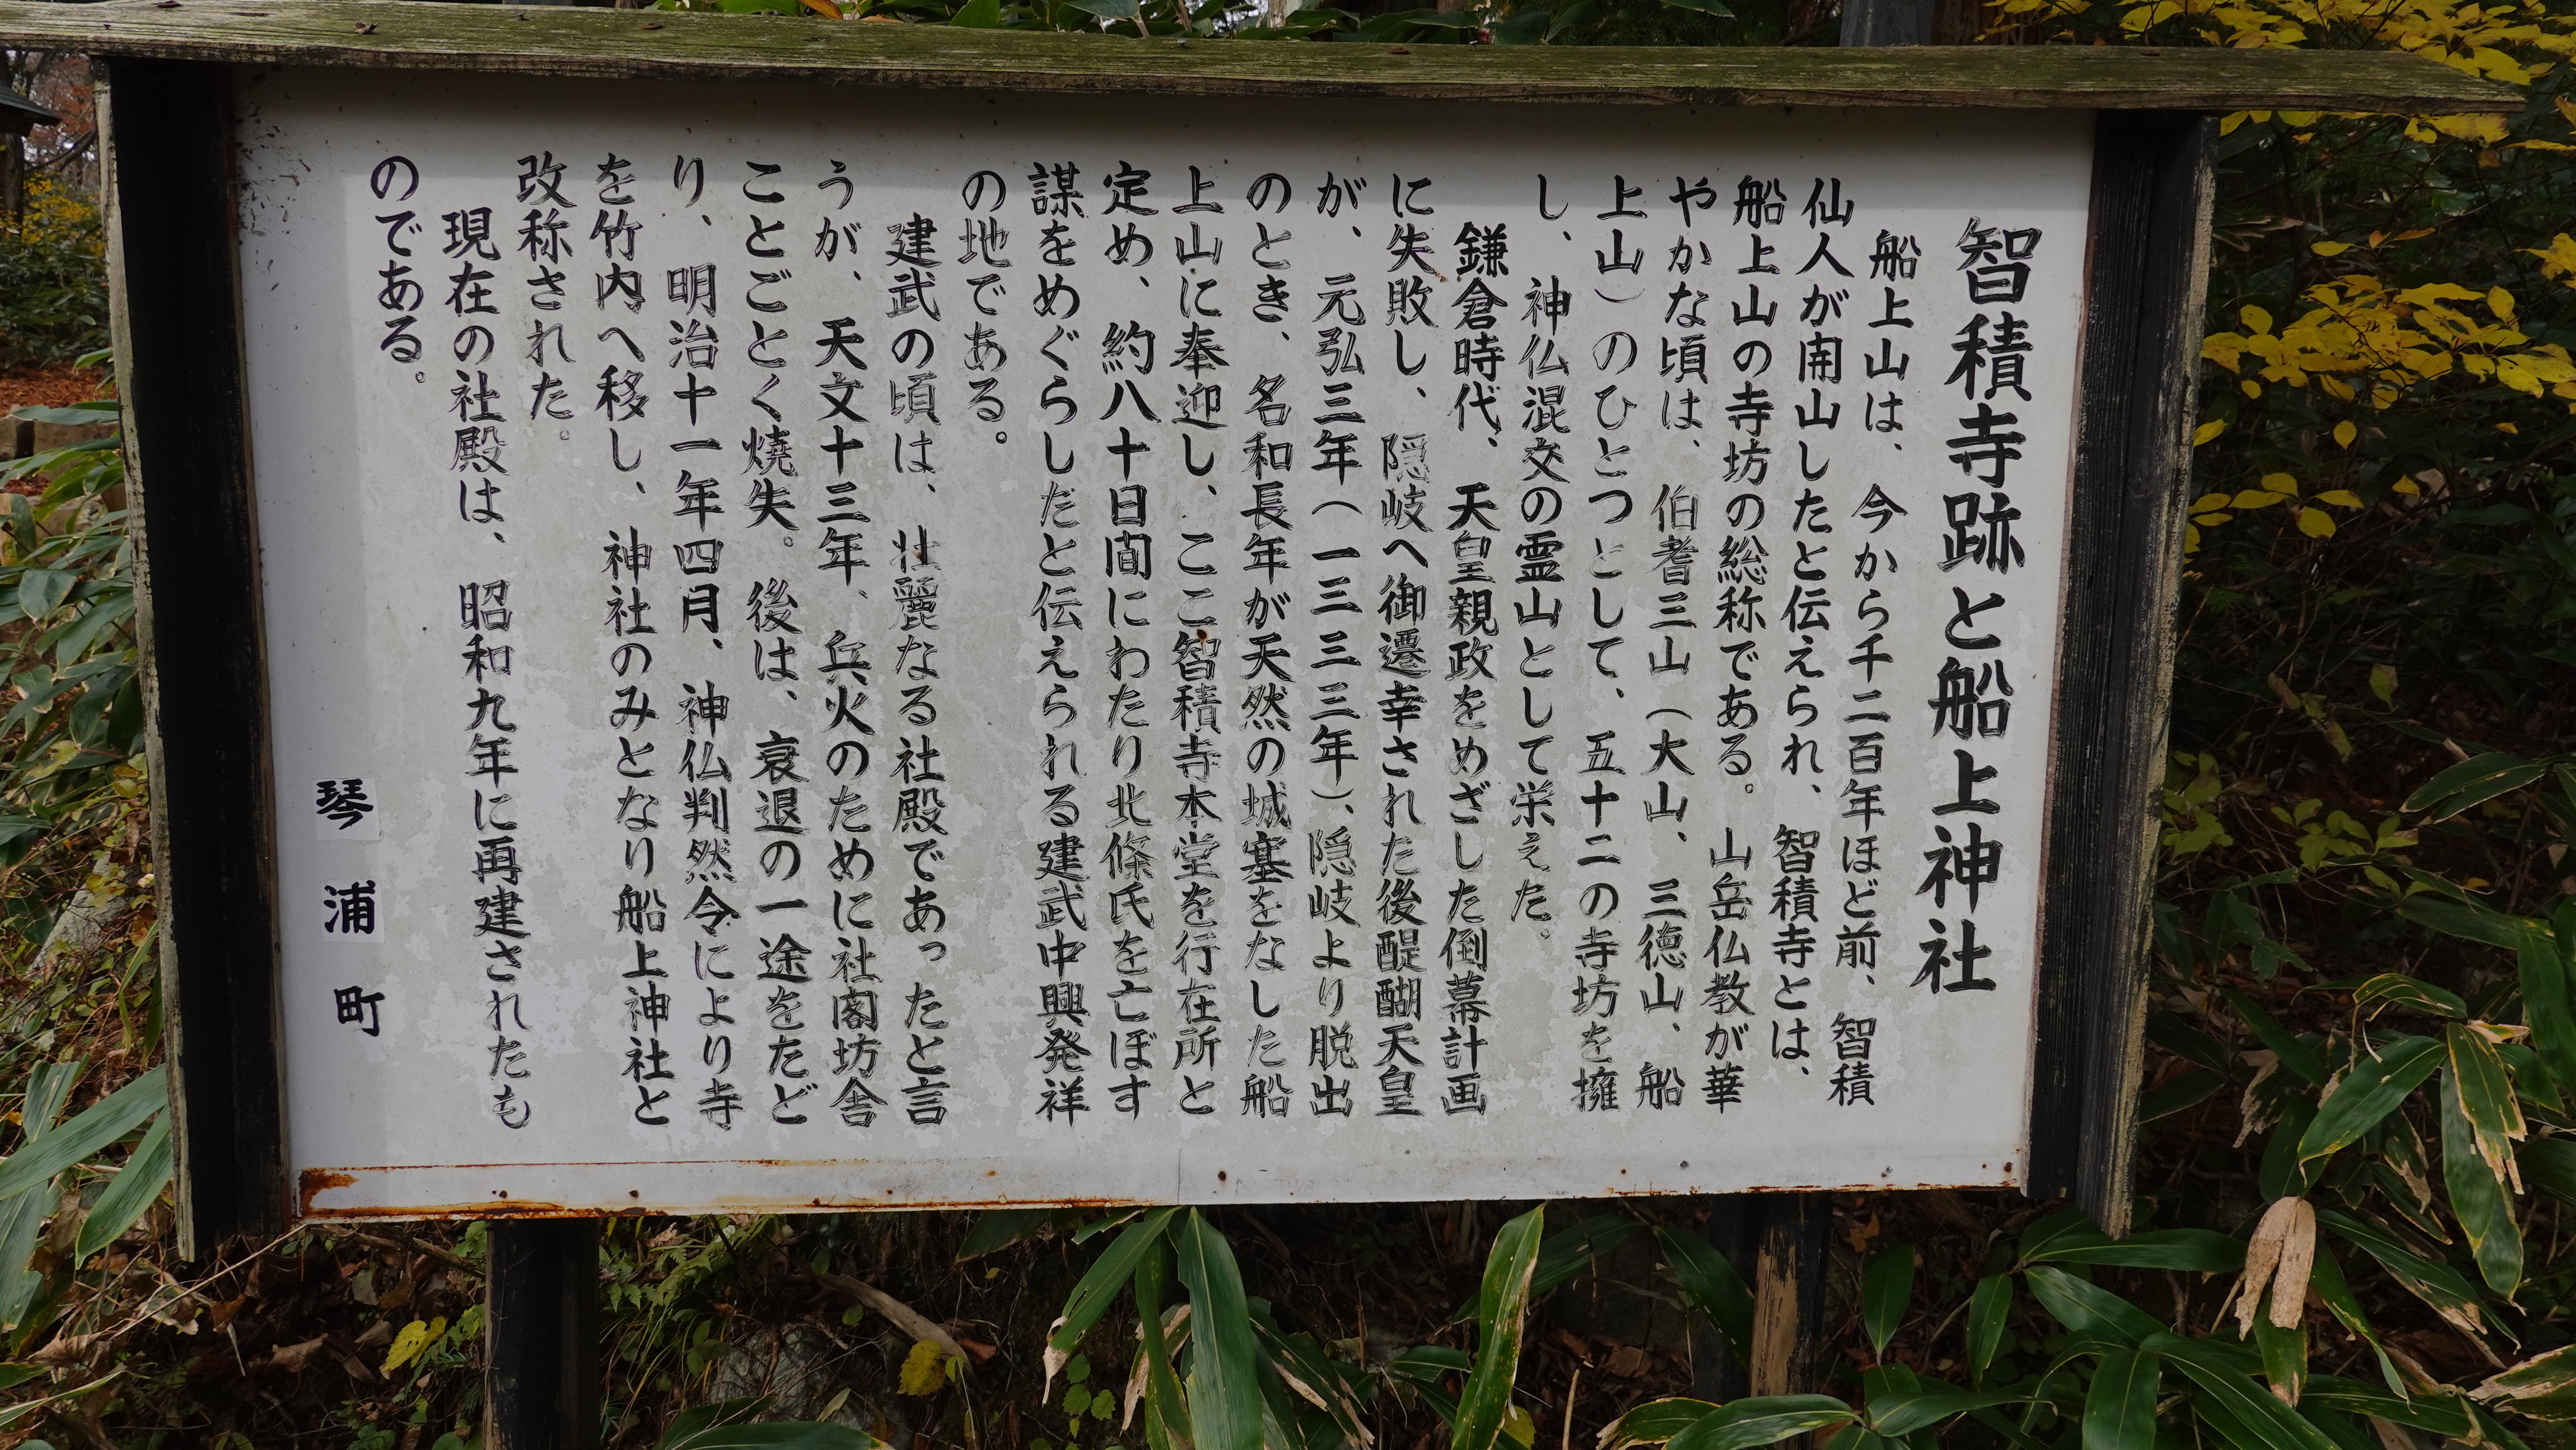 智積寺跡と船上神社
船上山は、今から千二百年ほど前、智積
仙人が開山したと伝えられ、智積寺とは、
船上山の寺坊の総称である。山岳仏教が華
やかな頃は、伯耆三山（大山、三徳山、船
上山）のひとつとして、五十二の寺坊を擁
し、神仏混交の霊山として栄えた。
鎌倉時代、天皇親政をめざした倒幕計画
に失敗し、隠岐へ御遷幸された後醍醐天皇
が、元弘三年（一三三三年）、隠岐より脱出
のとき、名和長年が天然の城塞をなした船
上山に奉迎し、ここ智積寺本堂を行在所と
定め、約八十日間にわたり北條氏を亡ぼす
謀をめぐらしたと伝えられる建武中興発祥
の地である。
建武の頃は、壮麗なる社殿であったと言
うが、天文十三年、兵火のために社閣坊舎
ことごとく焼失。後は、衰退の一途をたど
り、明治十一年四月、神仏判然令により寺
を竹内へ移し、神社のみとなり船上神社と
改称された。
現在の社殿は、昭和九年に再建されたも
のである。
琴浦町